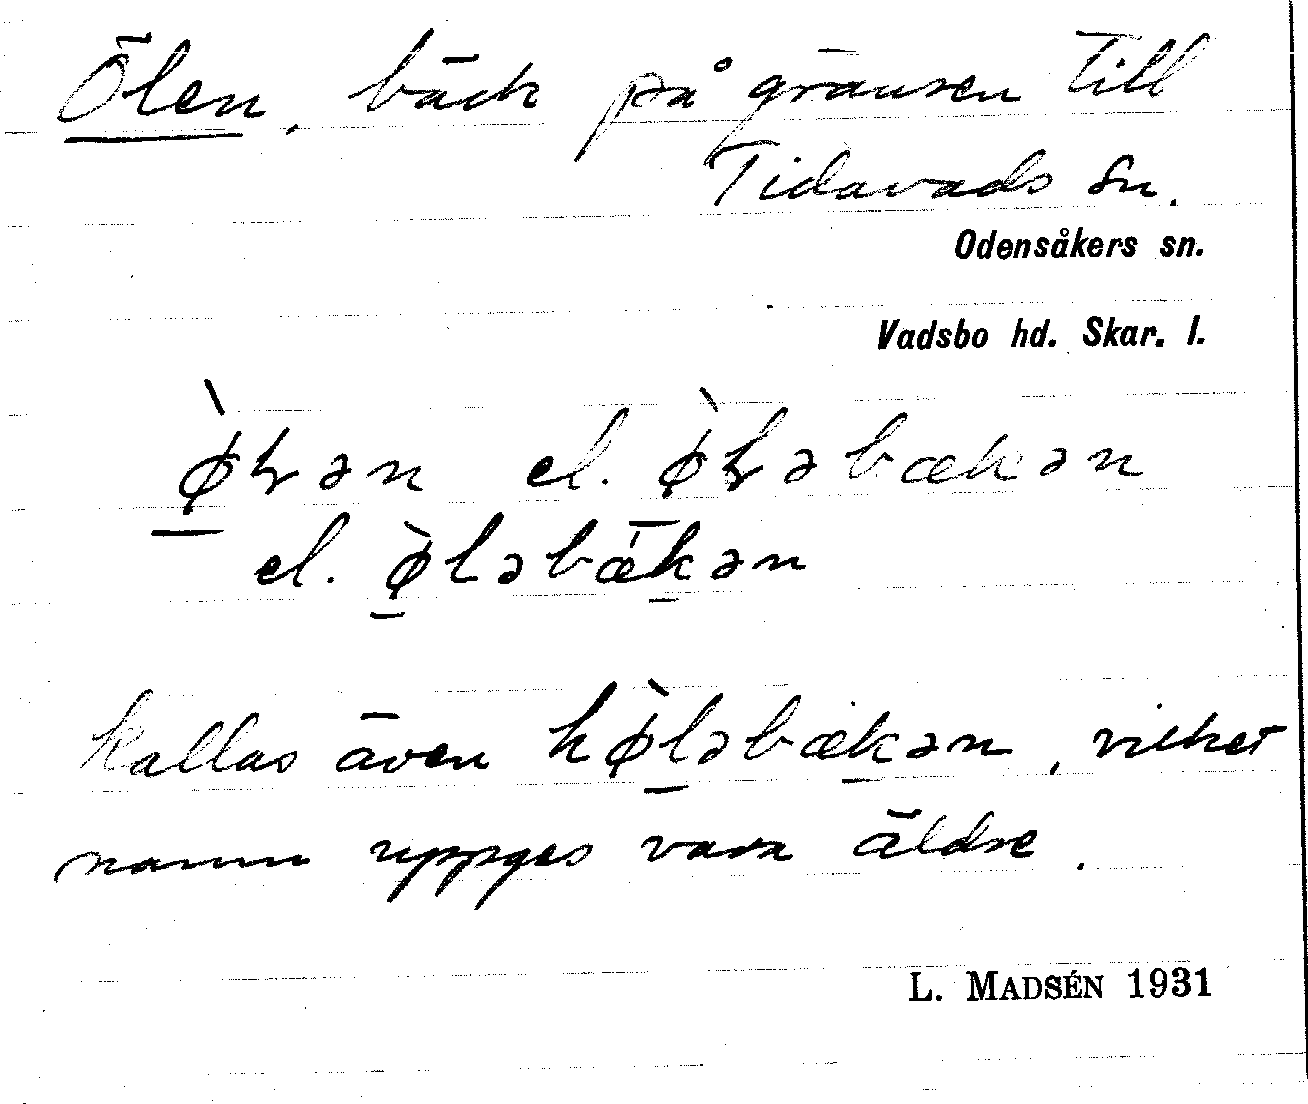 Ölen, bäck på gränsen till
Tidavads sn.
Odensåkers sn.
Vadsbo hd. Skar. l.
ø̀ɽən el. ø̀ɽəbækən
el. ø̀ləbækən
kallas även hø̀ləbækən, vilket
namn uppges vara äldre.
L. MADSÉN 1931